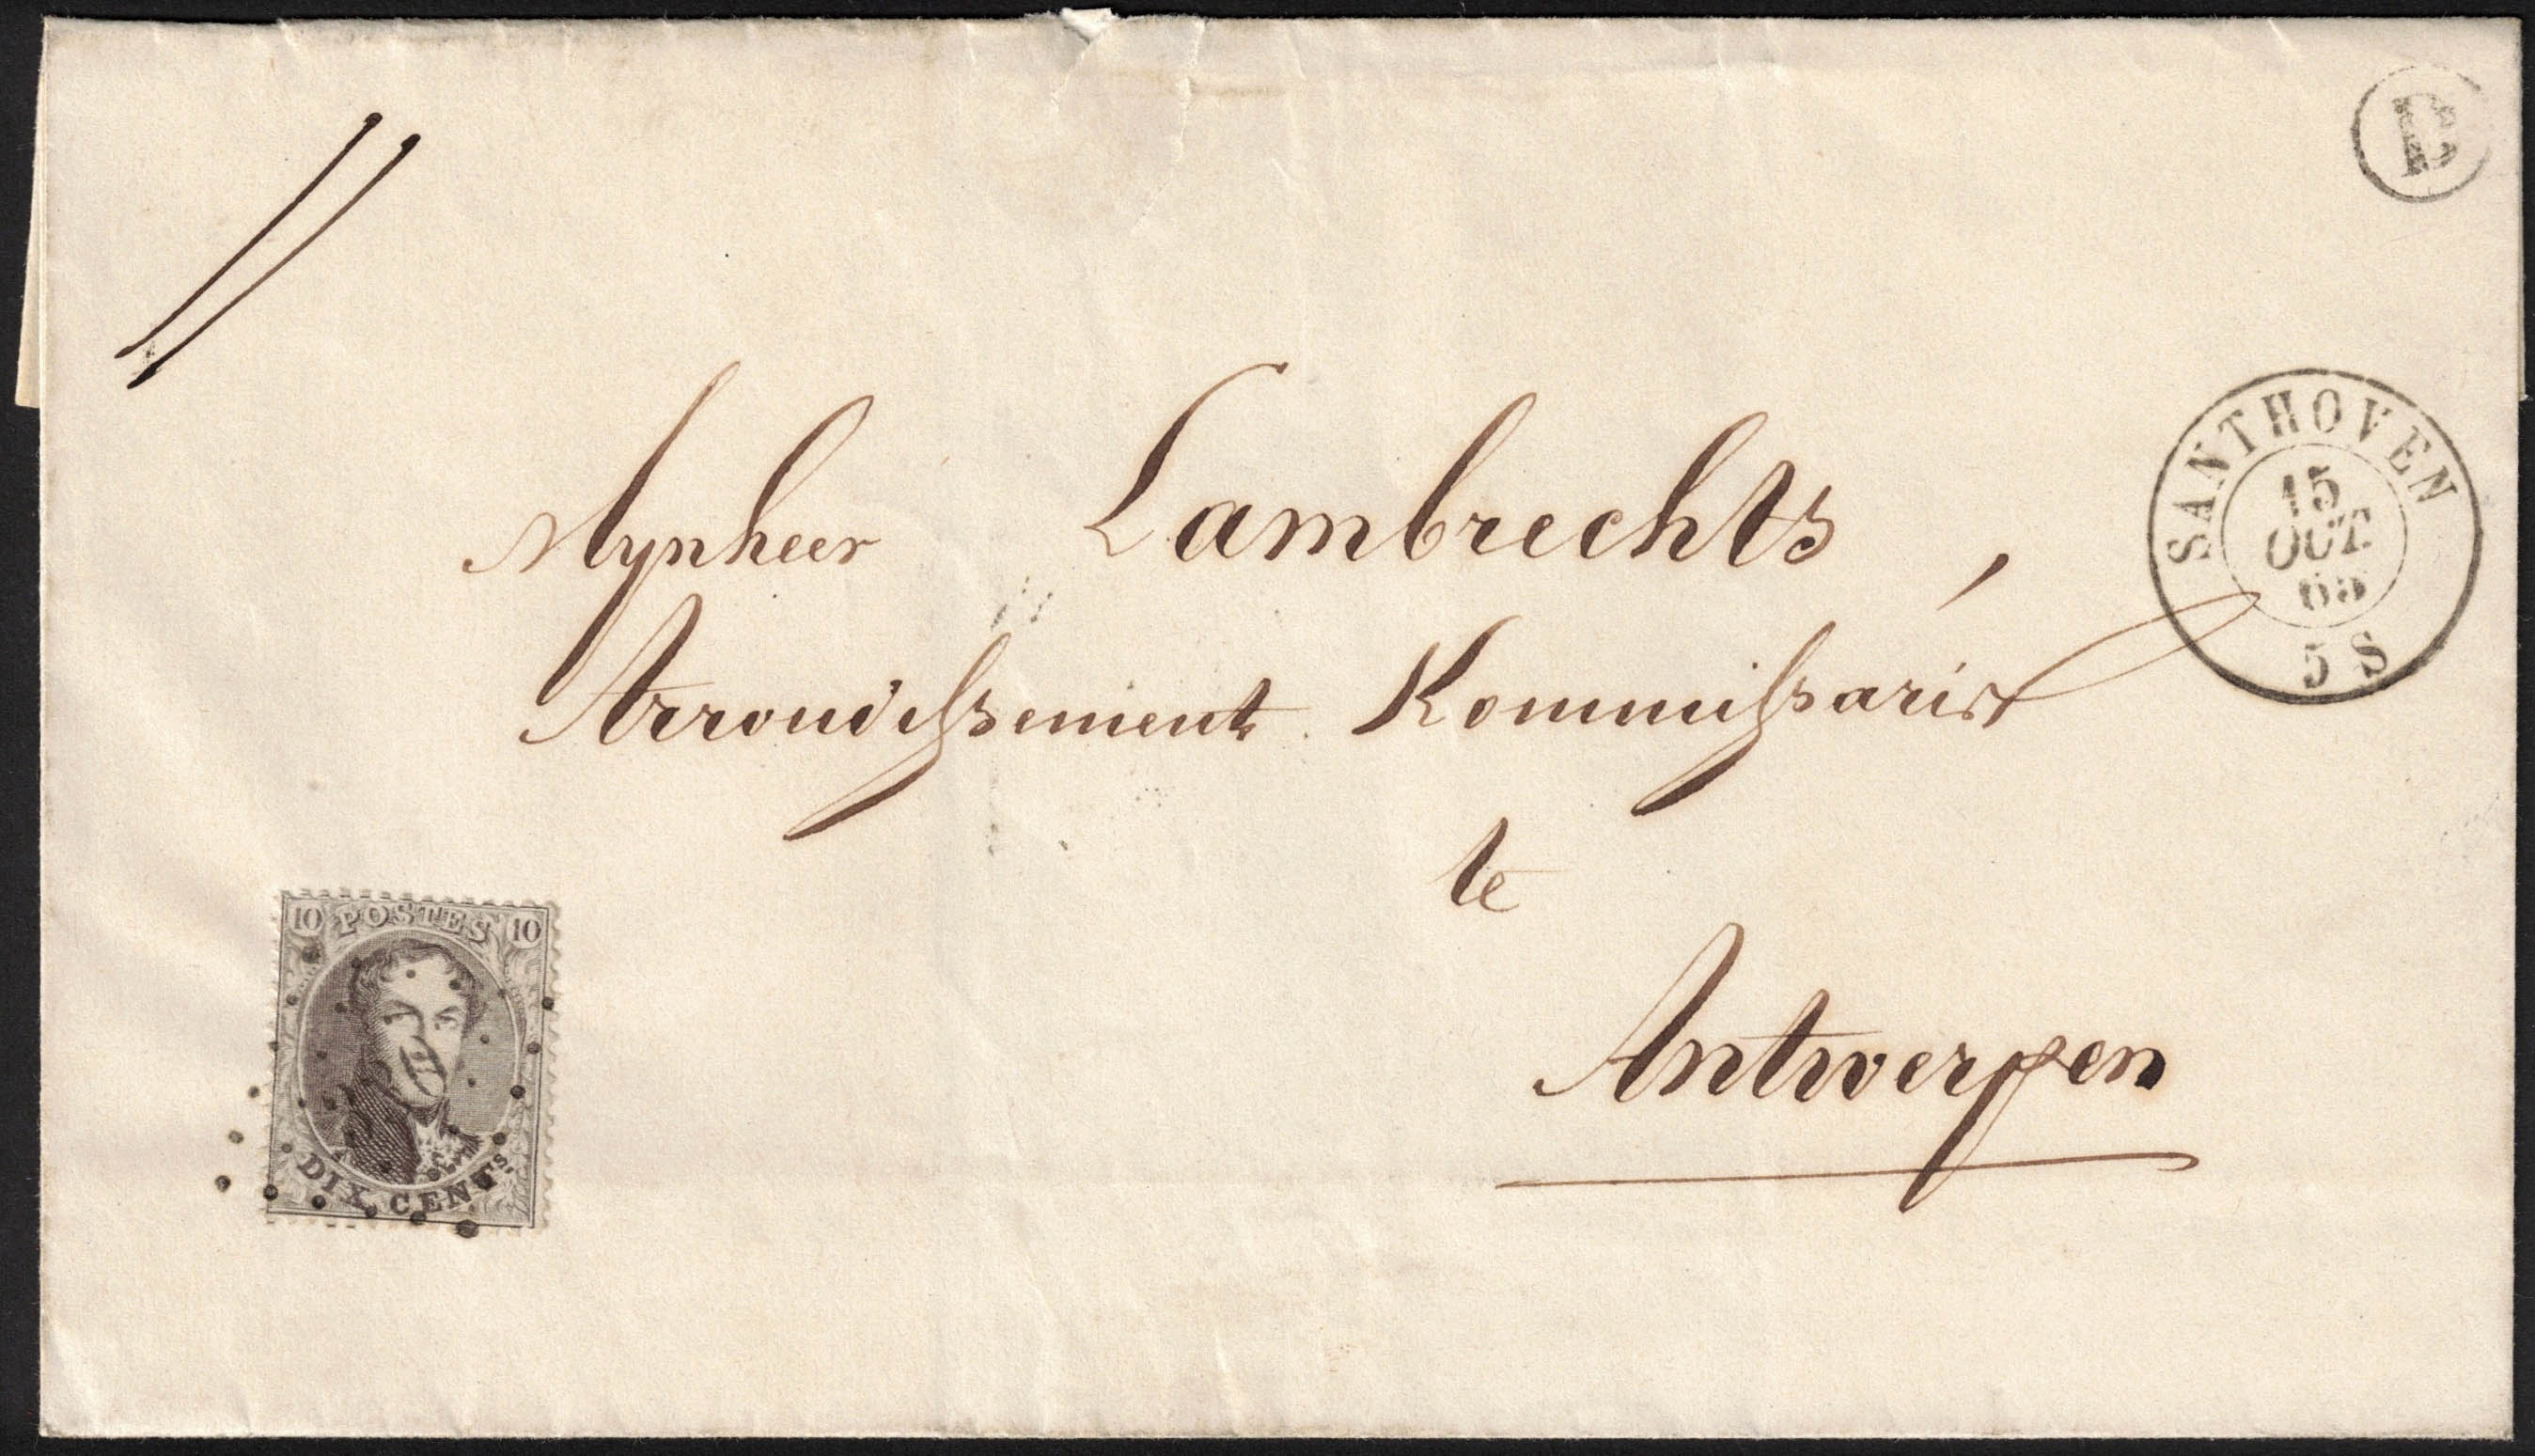 D
Mynheer Lambrechts,
SANTHOVEN
15
OCT.
65
5 S
Arrondissement Kommissaris
te
Antwerpen
10 POSTES 10
DIX CENTS.